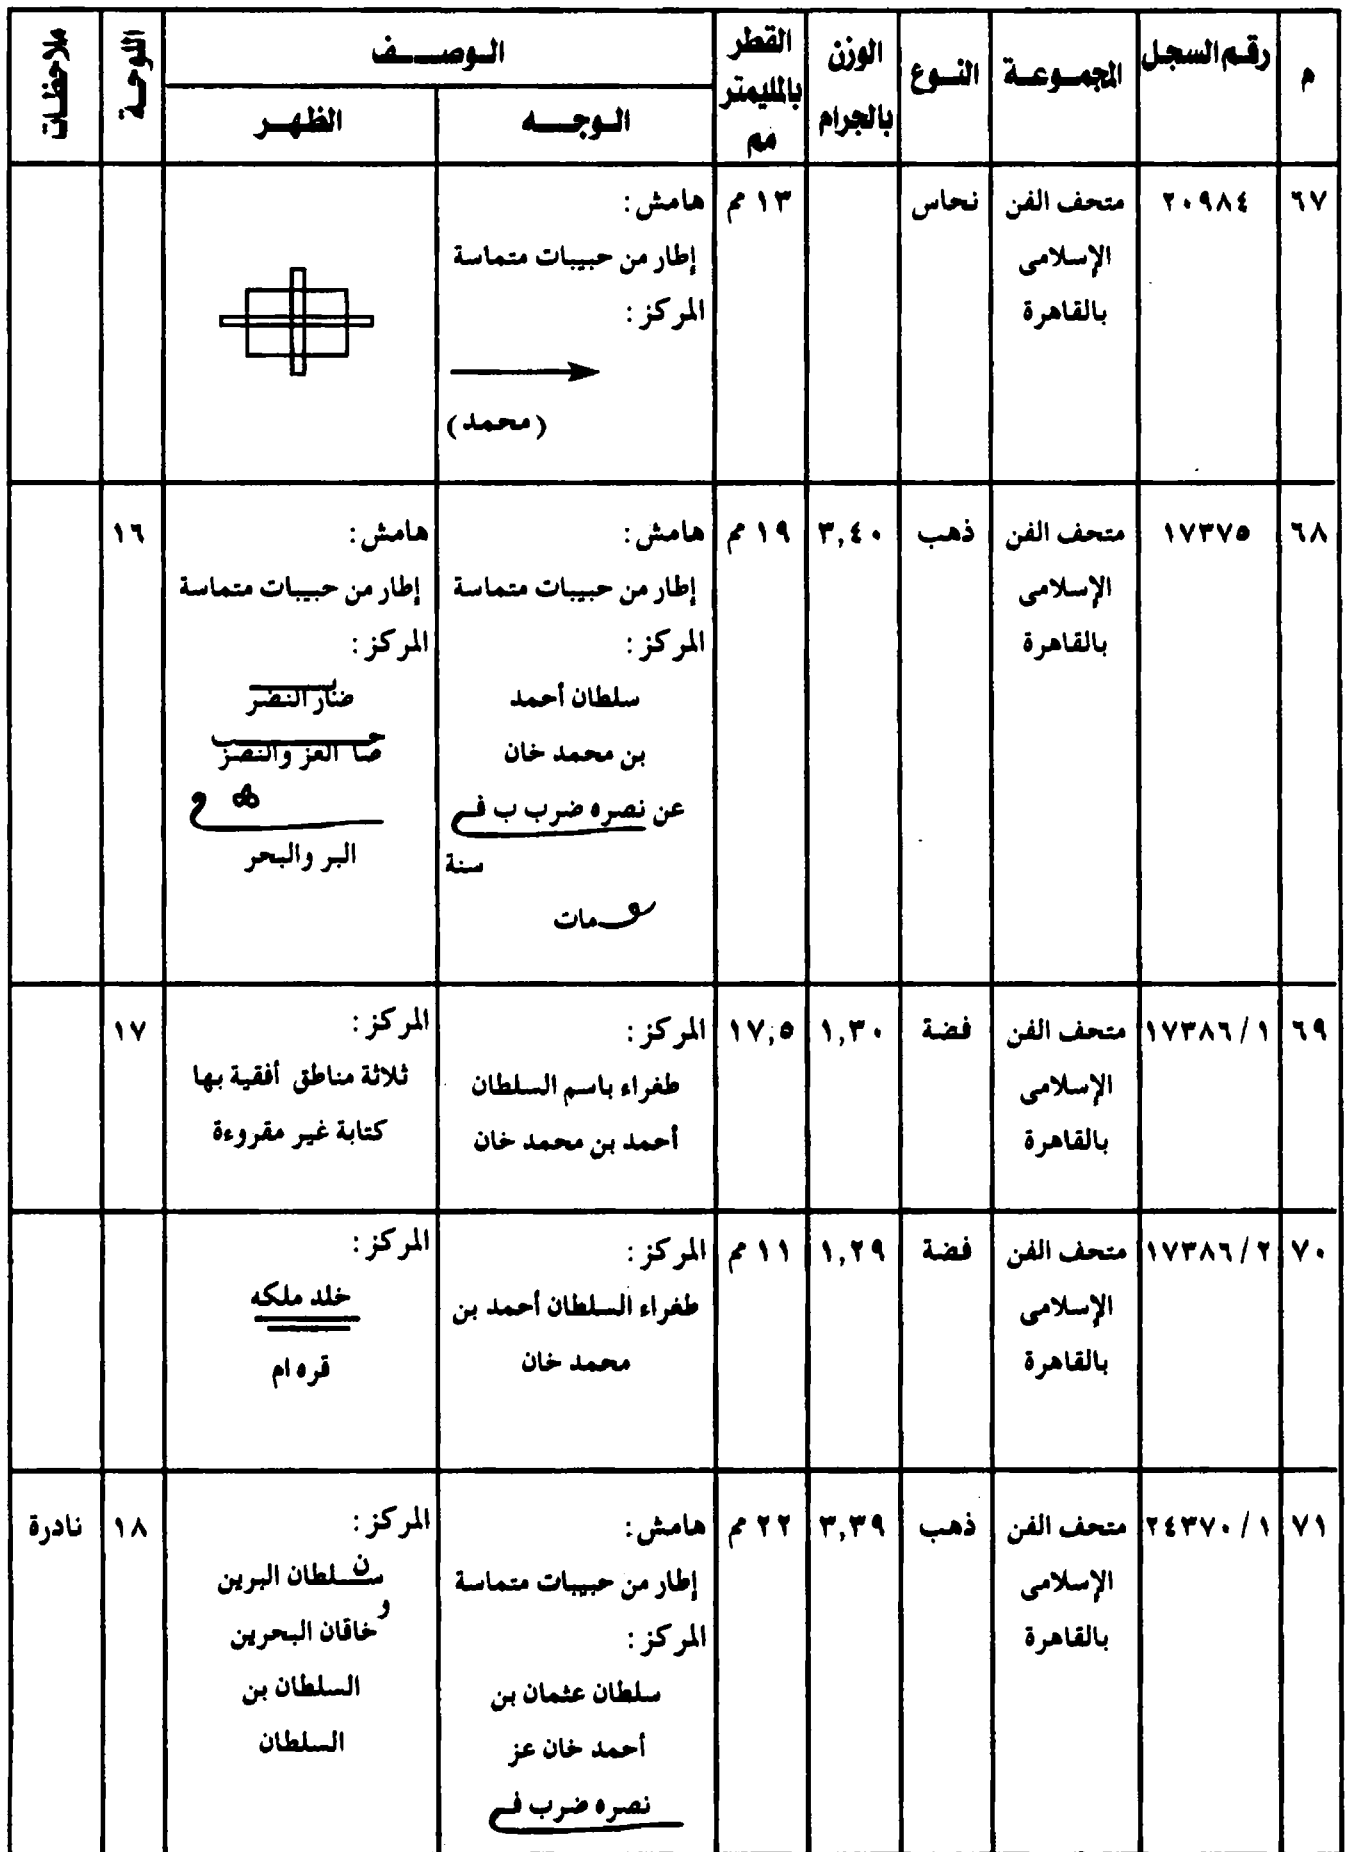 م
رقم السجل
المجموعة
النوع
الوزن
بالجرام
القطر
بالمليمتر
مم
الوصف
الوجه
الظهر
اللوحة
ملاحظات
٦٧
٢٠٩٨٤
متحف الفن
الإسلامى
بالقاهرة
نحاس
١٣ مم
هامش :
إطار من حبيبات متماسة
المركز :
(محمد)
٦٨
١٧٣٧٥
متحف الفن
الإسلامى
بالقاهرة
ذهب
٣,٤٠
١٩ مم
هامش :
إطار من حبيبات متماسة
المركز :
سلطان أحمد
بن محمد خان
عن نصره ضرب ب فى
سنة
مات
هامش :
إطار من حبيبات متماسة
المركز :
النضر
العز والنصر
البر والبحر
١٦
٦٩
١٧٣٨٦/١
متحف الفن
الإسلامى
بالقاهرة
فضة
١,٣٠
١٧,٥
المركز :
طغراء باسم السلطان
أحمد بن محمد خان
المركز :
ثلاثة مناطق أفقية بها
كتابة غير مقروءة
١٧
٧٠
١٧٣٨٦/٢
متحف الفن
الإسلامى
بالقاهرة
فضة
١,٢٩
١١ مم
المركز :
طغراء السلطان أحمد بن
محمد خان
المركز :
خلد ملكه
قره ام
٧١
٢٤٣٧٠/١
متحف الفن
الإسلامى
بالقاهرة
ذهب
٣,٣٩
٢٢ مم
هامش :
إطار من حبيبات متماسة
المركز :
سلطان عثمان بن
أحمد خان عز
نصره ضرب فى
المركز :
سلطان البرين
و
خاقان البحرين
السلطان بن
السلطان
١٨
نادرة